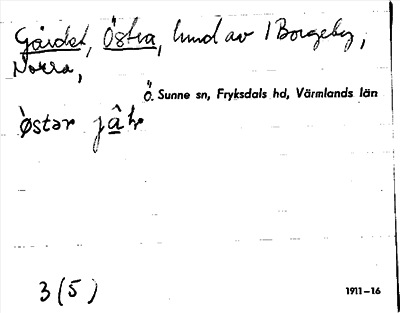 Gärdet, Östra, hmd av 1 Borgeby,
Norra,
Ö. Sunne sn, Fryksdals hd, Värmlands län
östər jâ̱ɫ
3 (5)
1911-16